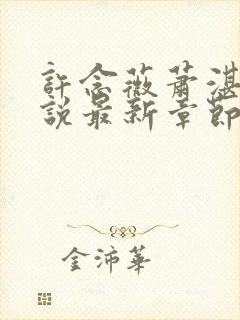 許念薇蕭湛
說最新章節
金沛華